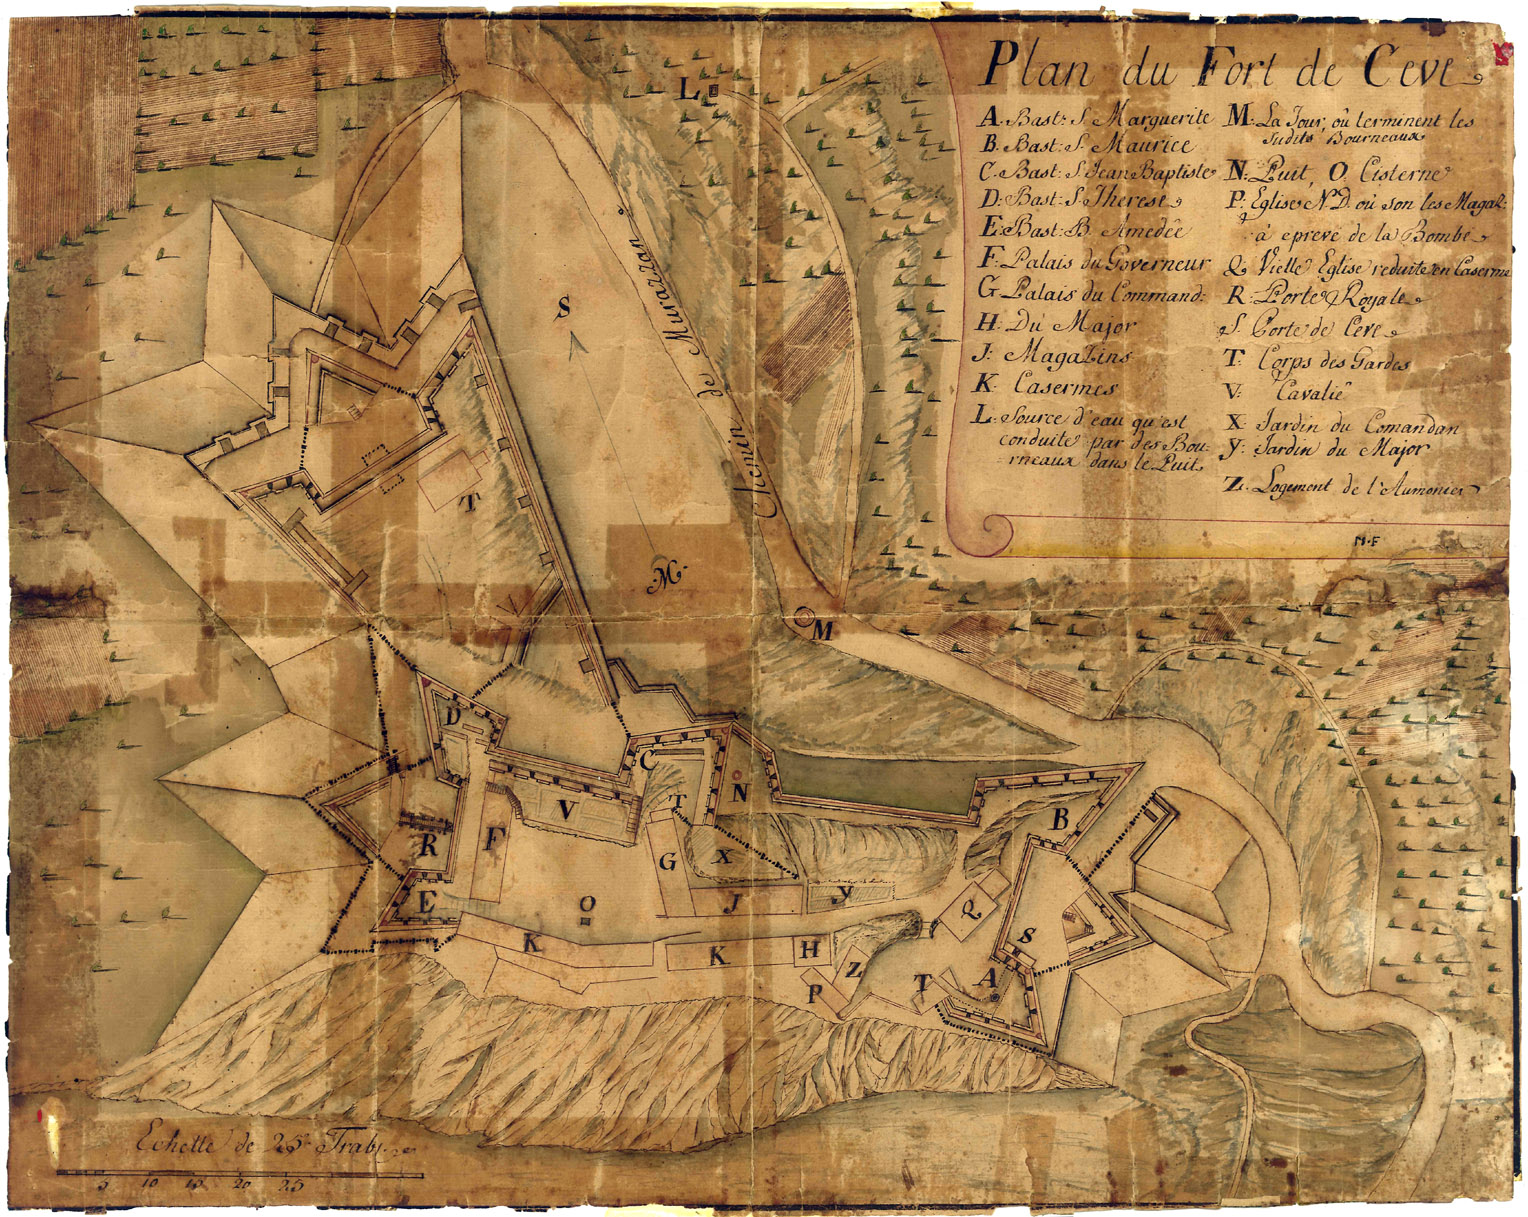 Plan du Fort de Ceve
A. Bast: S. Marguerite
B. Bast: S. Maurice
C. Bast: S. Jean Baptiste
D: Bast: S. Therese
E: Bast: B. Amedée
F: Palais du Governeur
G Palais du Command:
H: Du Major
J: MagaZins
K: Casermes
L: Source d'eau qu'est
conduite par des Bou-
rneaux dans le Puit
M: La Tour, où terminent les
sudits Bourneaux
N: Puit, O, Cisterne
P: Eglise N.D. où son les Magaz:
à epreve de la Bombe
Q Vielle Eglise reduite en Caserme
R: Porte Royale
S. Porte de Ceve
T. Corps des Gardes
V: Cavalié
X: Jardin du Comandan
Y: Jardin du Major
Z. Logement de l'Aumonier
M.F
L
S
Chemin de Murazzan
T
M
M
D
C
N
V
T
B
R
F
G
X
E
O
J
Y
Q
K
K
H
Z
S
P
T
A
Echelle de 25 Trab
5 10 15 20 25